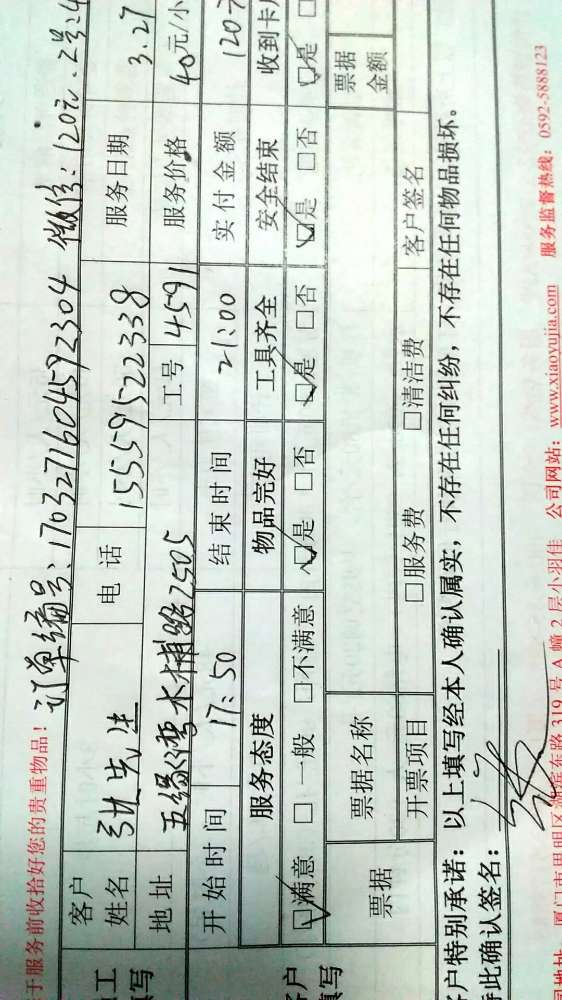 于服务前收拾好您的贵重物品！ 订单编号：1703271604592304 微信：120元．2号
客户姓名 张先生 电话 15559522338 服务日期 3.27
地址 五缘湾木棉路2505 工号 4591 服务价格 40元/小
开始时间 17:50 结束时间 21:00 实付金额 120元
服务态度 物品完好 工具齐全 安全结束 收到卡
满意 □一般 □不满意 是 □否 是 □否 是 □否 是
票据 票据名称 票据金额
开票项目 □服务费 □清洁费 客户签名
户特别承诺：以上填写经本人确认属实，不存在任何纠纷，不存在任何物品损坏。
此确认签名：
厦门市思明区湖滨东路 319 号 A 幢 2 层小羽佳 公司网站：www.xiaoyujia.com 服务监督热线：0592-5888123